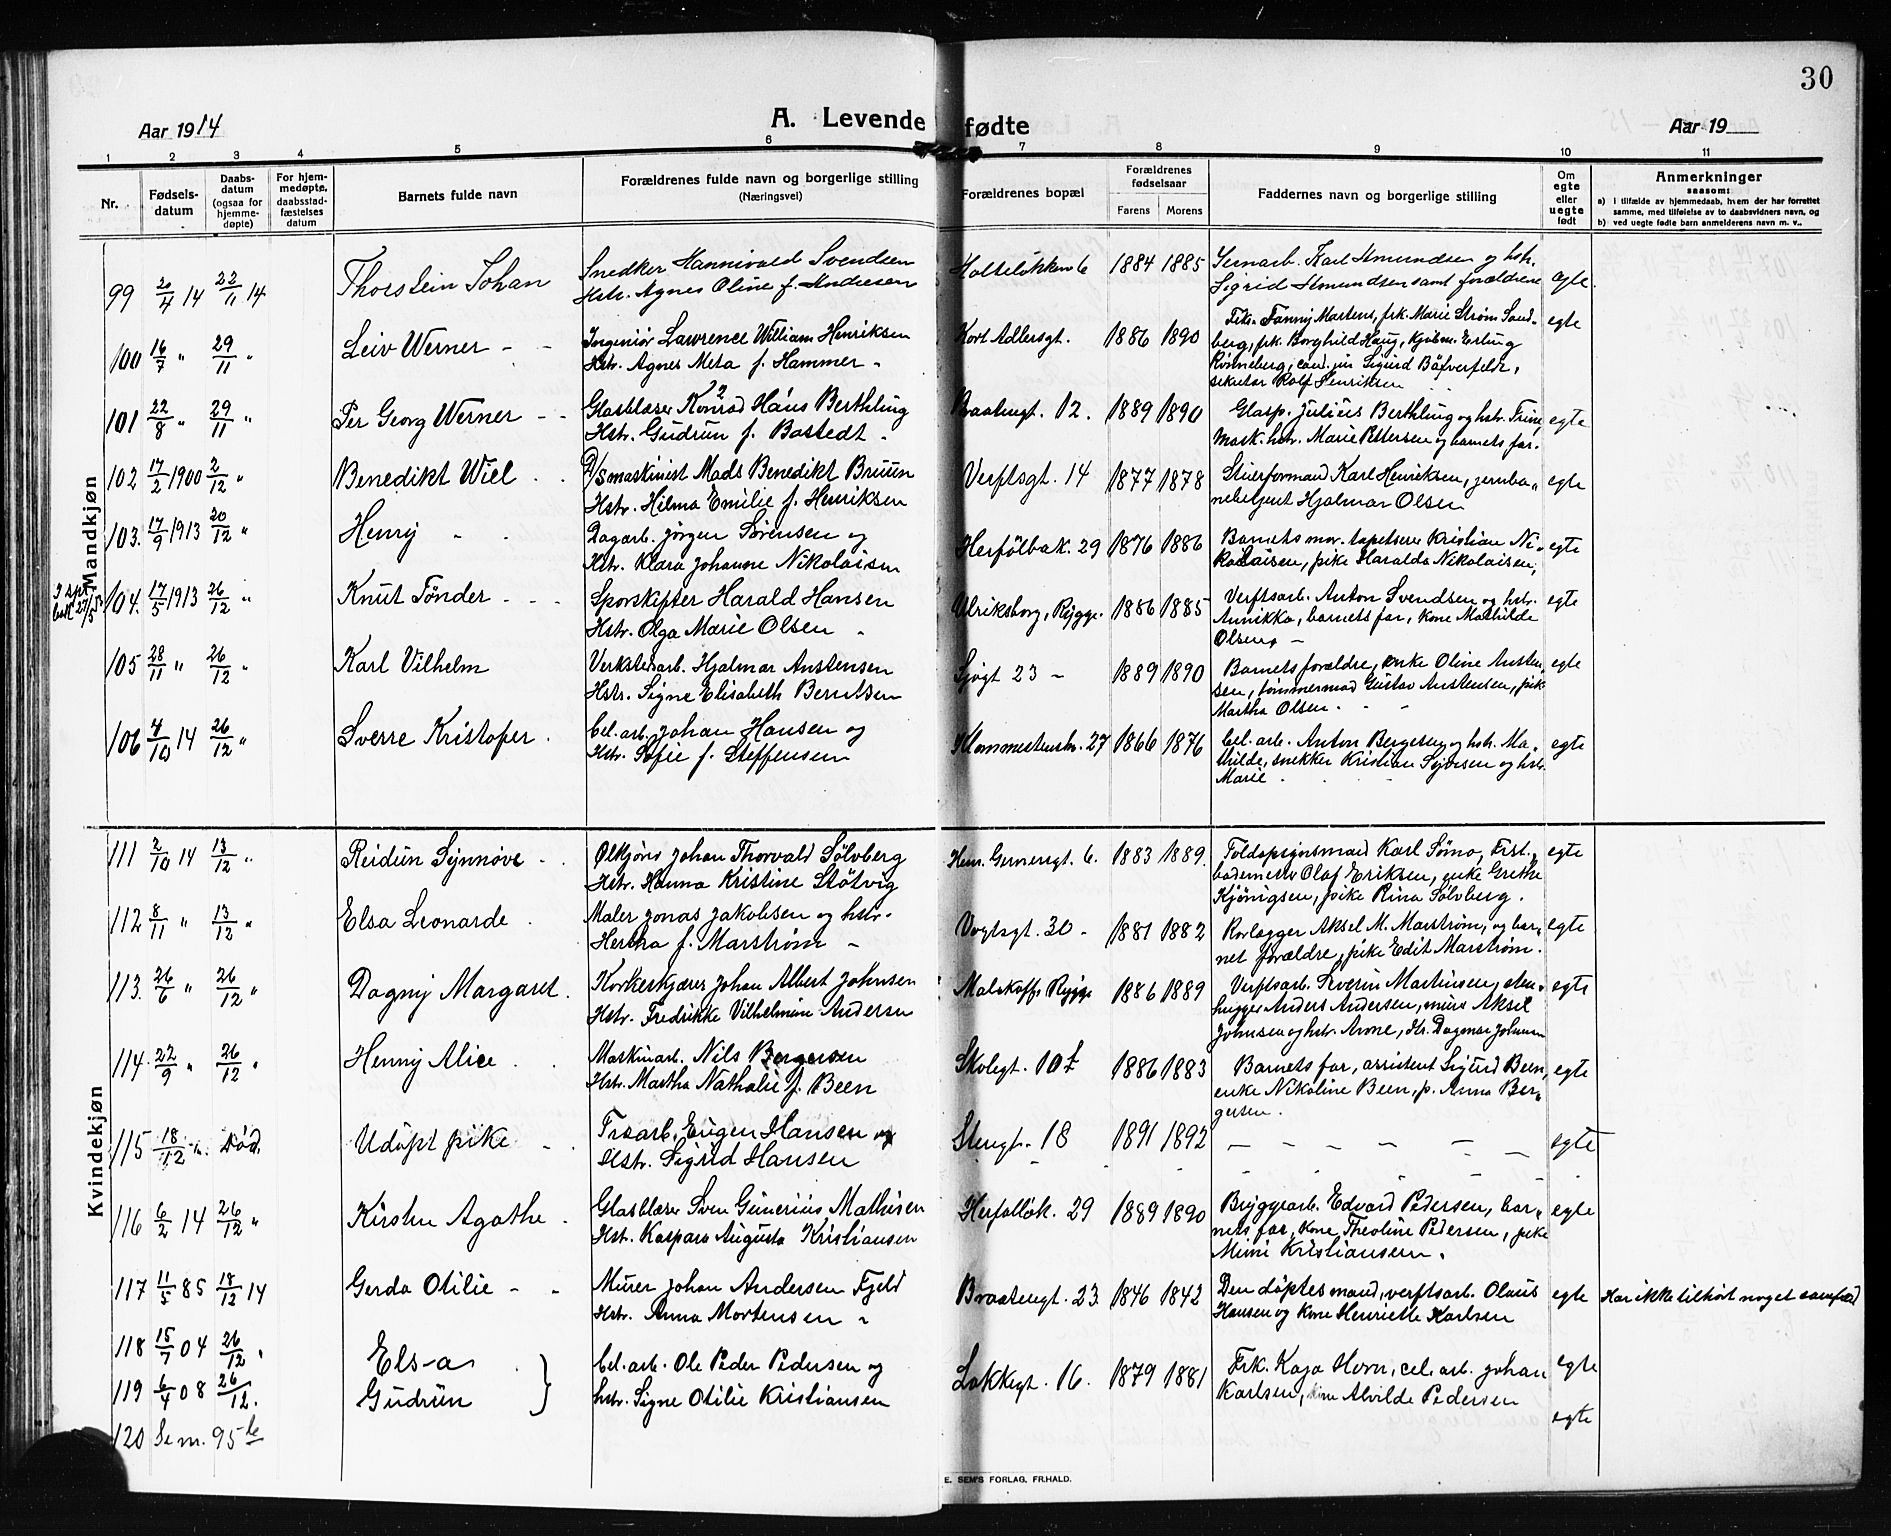 30
Aar 1914
A. Levende fødte
Aar 19
1 2 3 4 5 6 7 8 9 10 11
Nr.
Fødsels-
datum
Daabs-
datum
(ogsaa for
hjemme-
døpte)
For hjem-
medøpte,
daabsstad-
fæstelses
datum
Barnets fulde navn
Forældrenes fulde navn og borgerlige stilling
(Næringsvei)
Forældrenes bopæl
Forældrenes
fødselsaar
Farens Morens
Faddernes navn og borgerlige stilling
Om
egte
eller
uegte
født
Anmerkninger
saasom:
a) i tilfælde av hjemmedaab, hvem der har forrettet
samme, med tilføielse av to daabsvidners navn, og
b) ved uegte fødte barn anmelderens navn m. v.,
Mandkjøn
99 20/4 14 22/11 14 Thorstein Johan
Snedker Hannivald Svendsen
Hstr. Agnes Oline f. Andresen
Holteløkken 6 1884 1885
Jernarb. Karl Amundsen og hstr.
Sigrid Amundsen samt forældrene
egte
100 16/7 " 29/11 " Leiv Werner - -
Ingeniør Lawrence William Henriksen
Hstr. Agnes Meta f. Hammer -
Kort Adlersgt. 1886 1890
Frk. Fanny Martens, frk. Marie Strøm Sand-
berg, frk. Borghild Haug, kjøbm. Erling
Rønneberg, cand. jur Sigurd Bøfverfeldt,
sekretær Rolf Henriksen
egte
101 22/8 " 29/11 " Per Georg Werner - -
Glasblæser Konrad Hans Berthling
Hstr. Gudrun f. Bastedt -
Braatengt. 12. 1889 1890
Glasp. Julius Berthling og hstr. Trine,
mask. hstr. Marie Pettersen og barnets far.
egte
102 17/2 1900 2/12 " Benedikt Wiel - -
D/Smaskinist Mads Benedikt Bruun
Hstr. Hilma Emilie f. Henriksen
Verftsgt. 14 1877 1878
Stuerformand Karl Henriksen, jernba-
nebetjent Hjalmar Olsen
egte
103. 17/9 1913 20/12 " Henry - -
Dagarb. Jørgen Sørensen og
Hstr. Klara Johanne Nikolaisen
Herfølbak. 29 1876 1886
Barnets mor. tapetserer Kristian Ni-
kolaisen, pike Haralda Nikolaisen,
egte
104. 17/5 1913 26/12 " Knut Tønder - - -
Sporskifter Harald Hansen
Hstr. Olga Marie Olsen -
Ulriksborg, Rygge. 1886 1885
Verftsarb. Anton Svendsen og hstr.
Annikka, barnets far, kone Mathilde
Olsen, -
egte
105 28/11 " 26/12 " Karl Vilhelm
Verkstedarb. Hjalmar Anstensen
Hstr. Signe Elisabeth Berntsen
Sjøgt 23 - 1889 1890
Barnets forældre, enke Oline Ansten-
sen, tømmermand Gustav Anstensen, pike
Martha Olsen. - -
egte
106 4/10 14 26/12 " Sverre Kristofer.
Cel. arb. Johan Hansen og
Hstr. Sofie f. Steffensen
1866 1876
Cel. arb. Anton Bergesen og hstr. Ma-
thilde, snekker Kristian Syversen og hstr.
Marie
egte
Kvindekjøn
111 2/10 14 13/12 " Reidun Synnøve - -
Ølkjører Johan Thorvald Sølvberg
Hstr. Hanna Kristine Støtvig
Henr. Gernersgt. 6. 1883 1889.
Toldopsynsmand Karl Sømo, First.,
bademester Olaf Eriksen, enke Grethe
Kjønigsen, pike Rina Sølvberg.
egte
112 8/11 " 13/12 " Elsa Leonarde -
Maler Jonas Jakobsen og hstr.
Hertha f. Marstrøm -
Vogtsgt. 30 - 1881 1882
Rørlægger Aksel M. Marstrøm, og bar-
net forældre, pike Edit Marstrøm.
egte
113. 26/6 " 26/12 " Dagny Margaret.
Korkeskjærer Johan Albert Johnsen
Hstr. Fredrikke Vilhelmine Andersen
Rygge 1886 1889
Verftsarb. Severin Martinsen, sten-
hugger Anders Andersen, murer Aksel
Johnsen og hstr. Arone, Hr. Dagmar Johnsen
egte
114. 22/9 " 26/12 " Henny Alice - -
Maskinarb. Nils Bergersen
Hstr. Martha Nathalie f. Been
Skolegt. 10 f 1886 1883
Barnets far, assistent Sigurd Been,
enke Nikoline Been, p. Anna Ber-
gersen.
egte
115 18/12 n. Død. Udøpt pike -
Træarb. Eugen Hansen og
Hstr. Sigrid Hansen
Stengt. 18 1891 1892 - - - - -
egte
116 6/2 14 26/12 " Kirsten Agathe -
Glasblæser Sven Gunerius Mathisen
Hst. Kaspara Augusta Kristiansen
Herfølløk. 29 1889 1890
Bryggearb. Edvard Pedersen, bar-
nets far, kone Theoline Pedersen, pike
Mimi Kristiansen.
egte
117 11/5 85 18/12 14 Gerda Otilie - -
Murer Johan Andersen Fjeld
Hstr. Anna Mortensen -
Braatengt. 23. 1846 1842
Den døptes mand, verftsarb. Olaus
Hansen og kone Henriette Karlsen
egte Har ikke tilhørt noget samfund
118 15/7 04 26/12 " Elsa }
119 6/4 08 26/12. Gudrun
Cel. arb. Ole Peder Pedersen og
hstr. Signe Otilie Kristiansen
Løkkegt. 16. 1879 1881
Frk. Kaja Horn, cel. arb. Johan
Karlsen, kone Alvilde Pedersen
egte
egte
120 Se nr. 95 b
E. SEM'S FORLAG, FR.HALD.